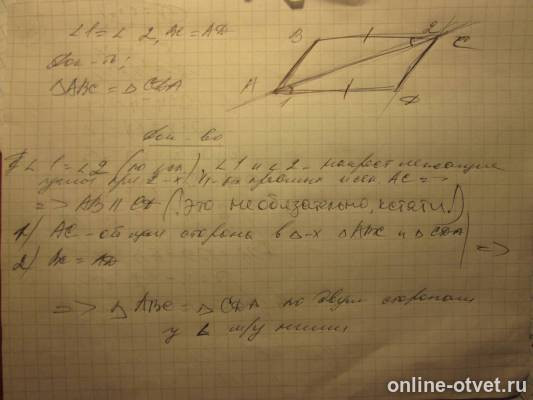 ∠1 = ∠ 2, AC = AD
Док-ть:
△ABC = △CDA
B 2 C
A 1 D
Док-во
∠1 = ∠2 (по усл.), ∠1 и ∠2 - накрест лежащие
при 2-х прямых и сек. AC =>
=> AB || CD (это необязательно, кстати!)
1) AC - общая сторона в △-х △ABC и △CDA
2) BC = AD
=>
=> △ABC = △CDA по двум сторонам
и ∠ м/у ними
online-otvet.ru